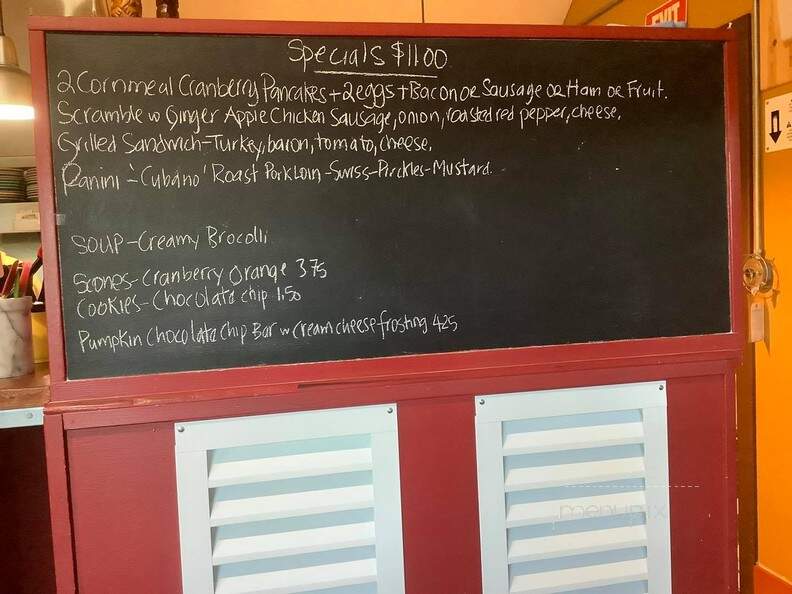 EXIT
Specials $11.00
2 Cornmeal Cranberry Pancakes + 2 eggs + Bacon or Sausage or Ham or Fruit.
Scramble w Ginger Apple Chicken Sausage, onion, roasted red pepper, cheese.
Grilled Sandwich - Turkey, bacon, tomato, cheese.
Panini - 'Cubano' Roast Pork Loin - Swiss - Pickles - Mustard.
SOUP - Creamy Brocolli
Scones - Cranberry Orange 3.75
Cookies - Chocolate chip 1.50
Pumpkin Chocolate Chip Bar w cream cheese frosting 4.25
menupix